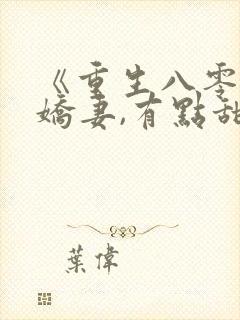 《重生八零
嬌妻,有點甜
葉偉